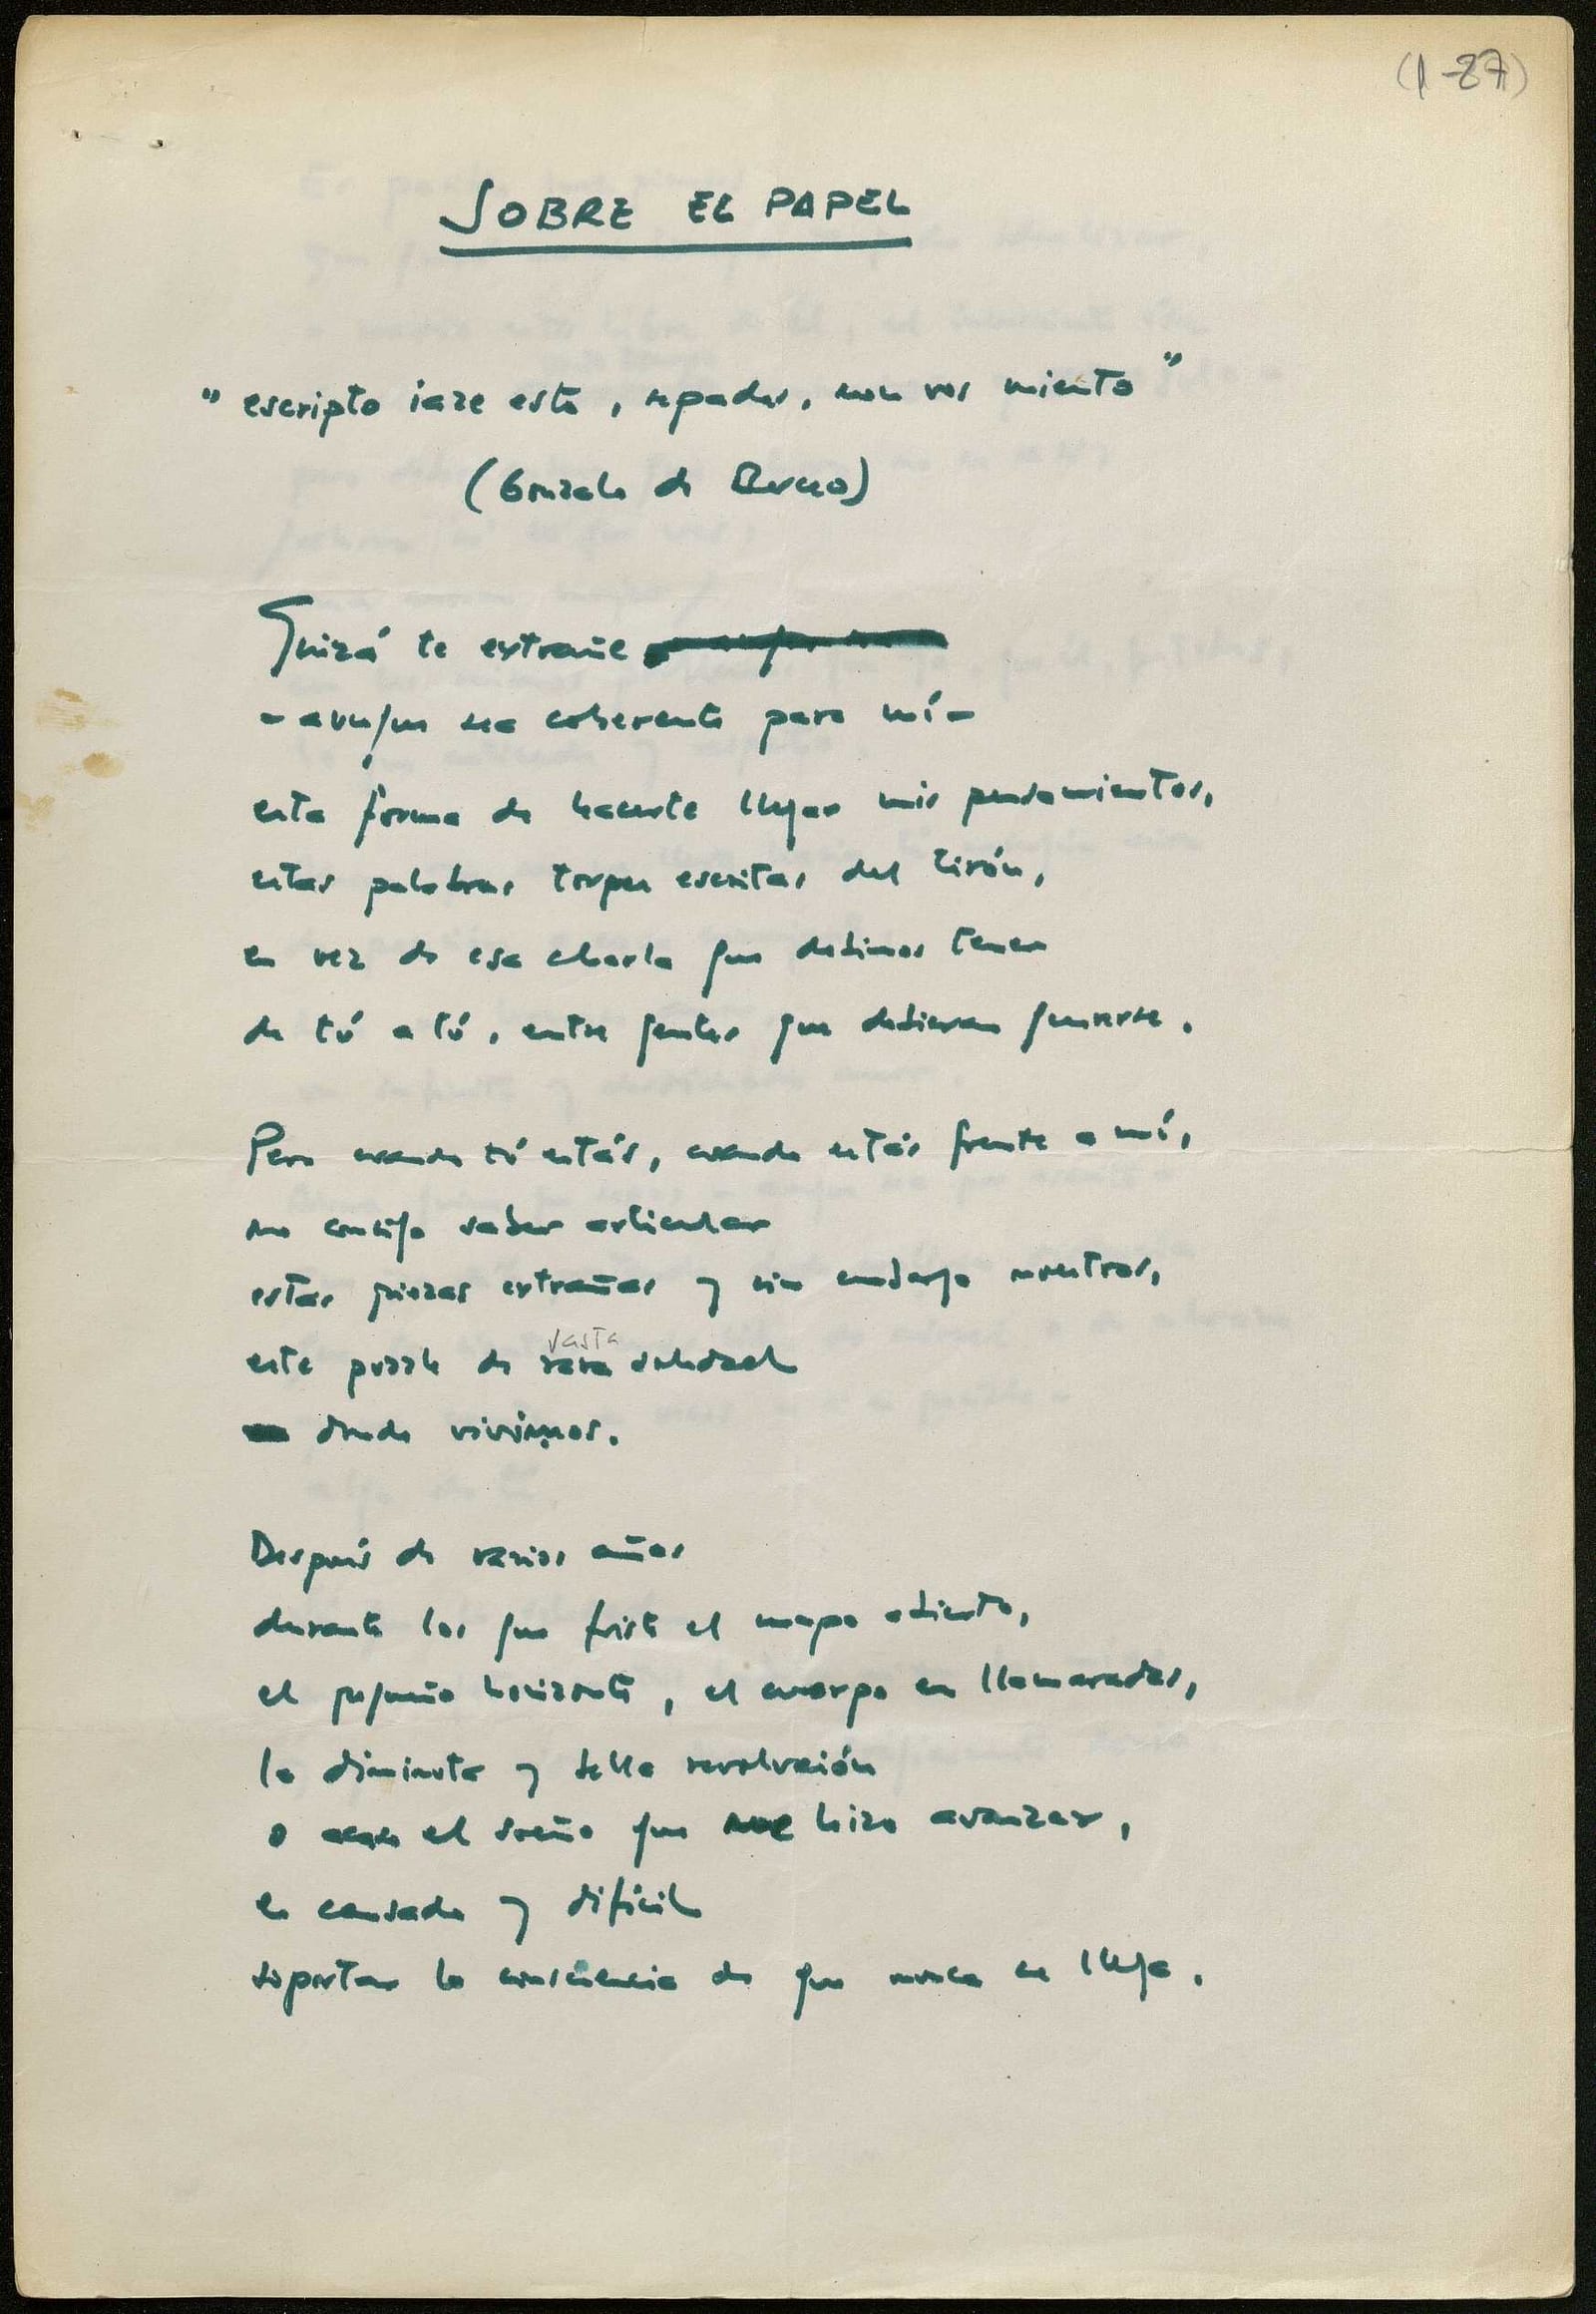 (1-87)
SOBRE EL PAPEL
"escripto iaze esto, sepades, non vos miento"
(Gonzalo de Berceo)
Quizá te extrañe
- aunque sea coherente para mí -
esta forma de hacerte llegar mis pensamientos,
estas palabras torpes escritas del tirón,
en vez de esa charla que debimos tener
de tú a tú, entre gentes que debieran quererse.
Pero cuando tú estás, cuando estás frente a mí,
no consigo saber articular
estas piezas extrañas y sin embargo nuestras,
vasta
este puzzle de rara soledad
donde vivimos.
Después de varios años
durante los que fuiste el mapa abierto,
el pequeño horizonte, el cuerpo en llamaradas,
la diminuta y bella revolución
o acaso el sueño que me hizo avanzar,
es cansado y difícil
soportar la consciencia de que nunca se llega.